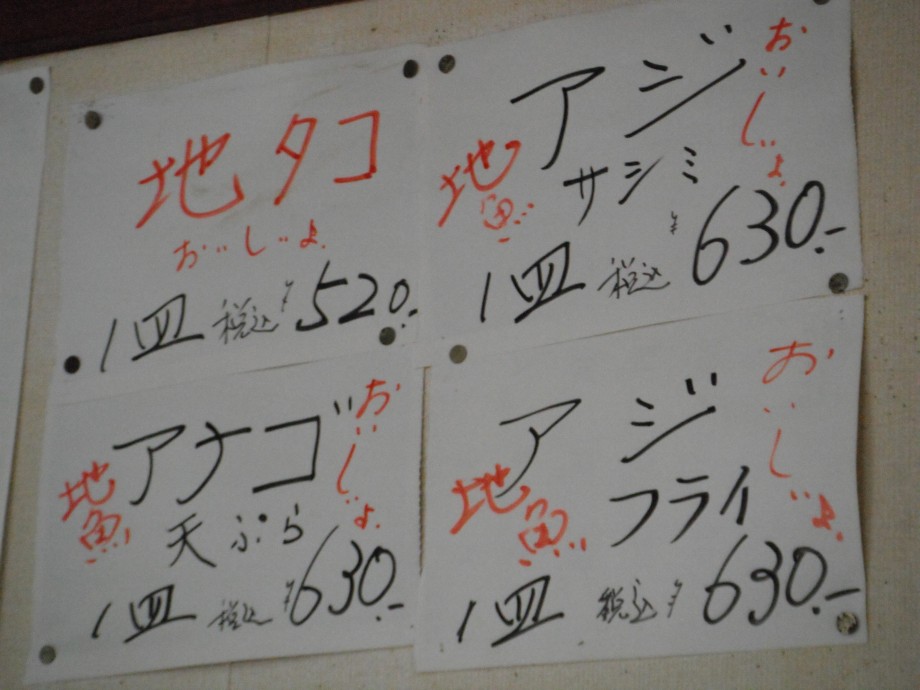 地タコ
おいしいよ
1皿 税込 ¥520.-
アジ
サシミ
地魚
おいしいよ
1皿 税込 ¥630.-
アナゴ
天ぷら
地魚
おいしいよ
1皿 税込 ¥630.-
アジ
フライ
地魚
おいしいよ
1皿 税込 ¥630.-